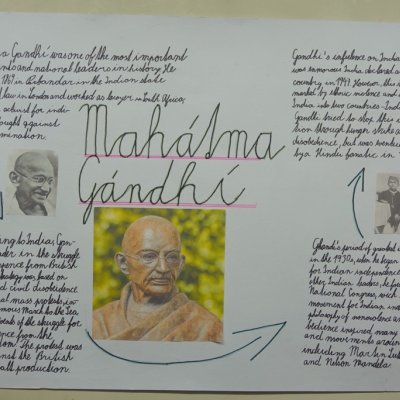 a Gandhi was one of the most important
and national leaders in history. He
in the Indian state
law in London and worked as lawyer in South Africa,
activist for indi
ought against
mination.
Mahátma
Gándhí
ng to India, Gan-
der in the struggle
ence from British
strategy was based on
d civil disobedience
mass protests, in-
mous March to the Sea
of the struggle for
ence from the
dom. The protest was
inst the British
salt production.
Gandhi's influence on India
was enormous. India declared a
country in 1947. However, this
marked by ethnic violence and
India into two countries - India
Gandhi tried to stop this
tion through hunger strikes a
disobedience, but was eventua
by a Hindu fanatic in
Gandhi's period of greatest
in the 1930s, when he began
for Indian independence
other Indian leaders, he
National Congress, which
movement for Indian in
philosophy of nonviolence an
bedience inspired many
and movements aroun
including Martin Lut
and Nelson Mandela